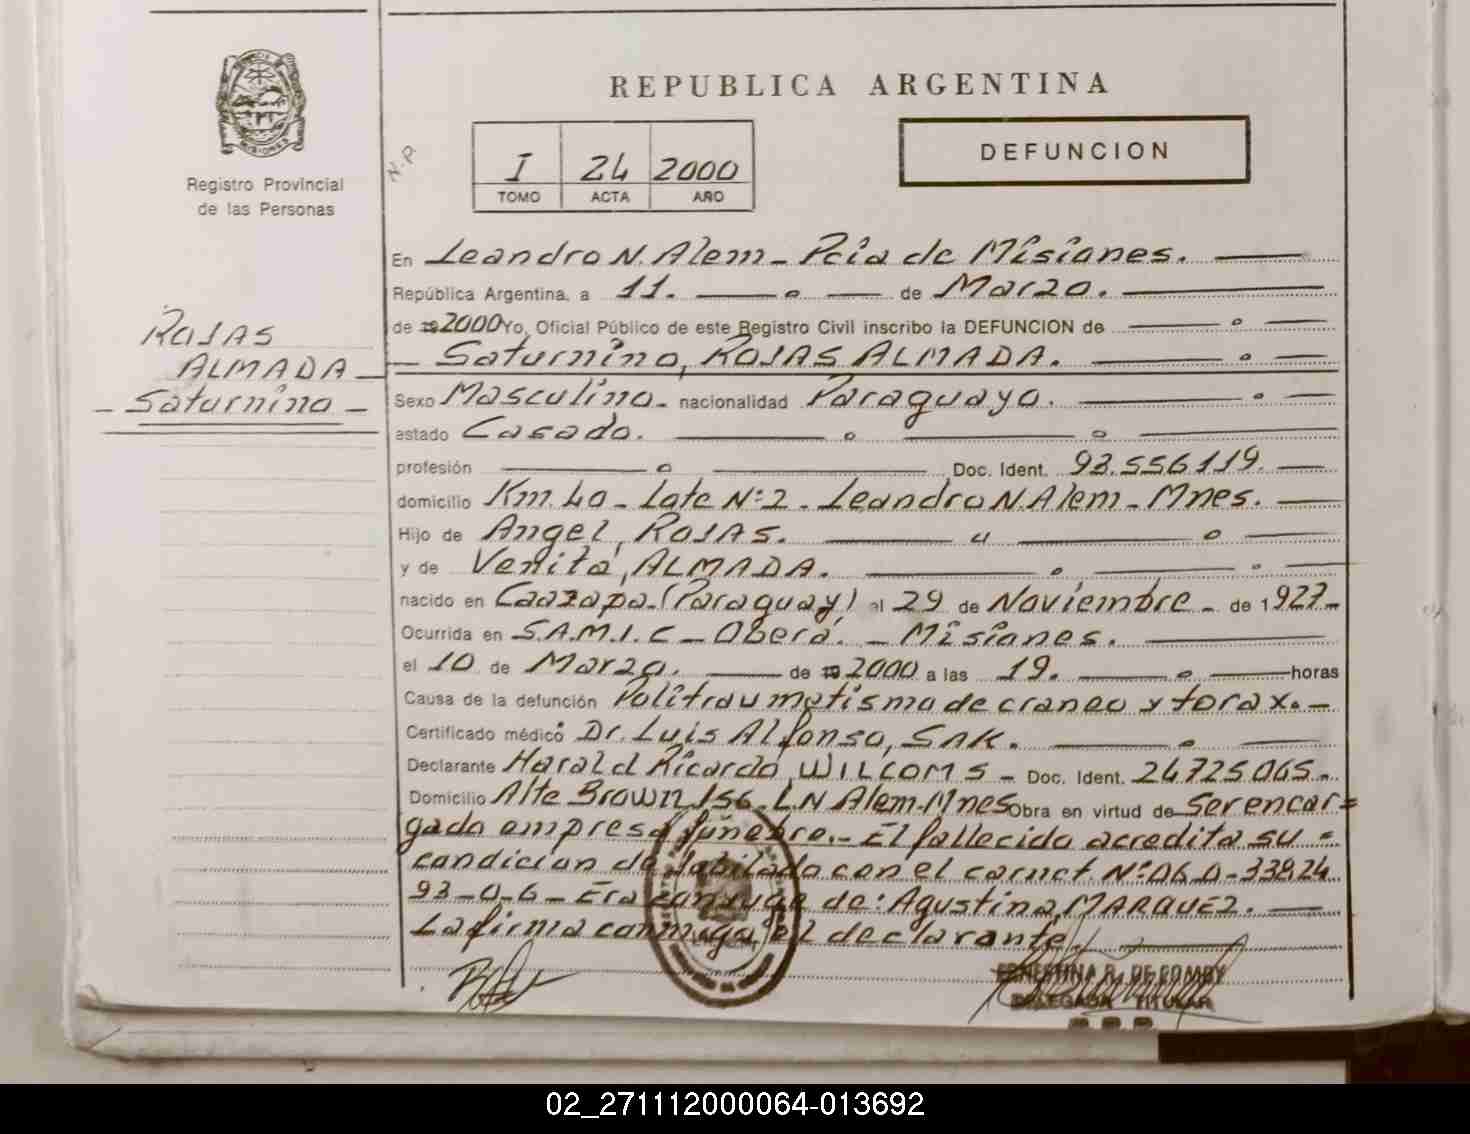 REPUBLICA ARGENTINA
DEFUNCION
N.P.
I 24 2000
TOMO ACTA AÑO
PROVINCIA DE MISIONES
Registro Provincial
de las Personas
ROJAS
ALMADA
- Saturnino -
En Leandro N. Alem - Pcia de Misiones.
República Argentina, a 11. de Marzo.
de 19 2000 Yo, Oficial Público de este Registro Civil inscribo la DEFUNCION de
- Saturnino, ROJAS ALMADA.
Sexo Masculino - nacionalidad Paraguayo.
estado Casado.
profesión Doc. Ident. 93.556119.
domicilio Km. 40 - Lote Nº 2 - Leandro N. Alem - Mnes.
Hijo de Angel, ROJAS.
y de Venita, ALMADA.
nacido en Caazapa - (Paraguay) el 29 de Noviembre - de 1927 -
Ocurrida en S.A.M.I.C - Obera. - Misiones.
el 10 de Marzo. de 19 2000 a las 19. horas
Causa de la defunción Politraumatismo de craneo y torax. -
Certificado médico Dr. Luis Alfonso, SAK.
Declarante Harald Ricardo, WILCOMS - Doc. Ident. 24725065 -
Domicilio Alte Brown 156 - L.N Alem - Mnes Obra en virtud de Ser encar=
gado empresa fuñebre. - El fallecido acredita su =
condicion de Jubilado con el carnet Nº 06.0-33924
93-0-6 - Era conyuge de: Agustina, MARQUEZ.
La firma conmigo, el declarante.
ERNESTINA R. DE
DELEGADA TITULAR
02_271112000064-013692